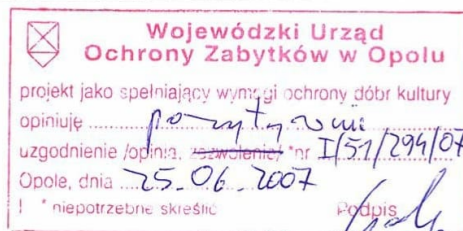 Wojewódzki Urząd
Ochrony Zabytków w Opolu
projekt jako spełniający wymogi ochrony dóbr kultury
opiniuję ......... pozytywnie
uzgodnienie /opinia, zezwolenie/ *nr I/51/294/07
Opole, dnia ... 25.06.2007
* niepotrzebne skreślić Podpis